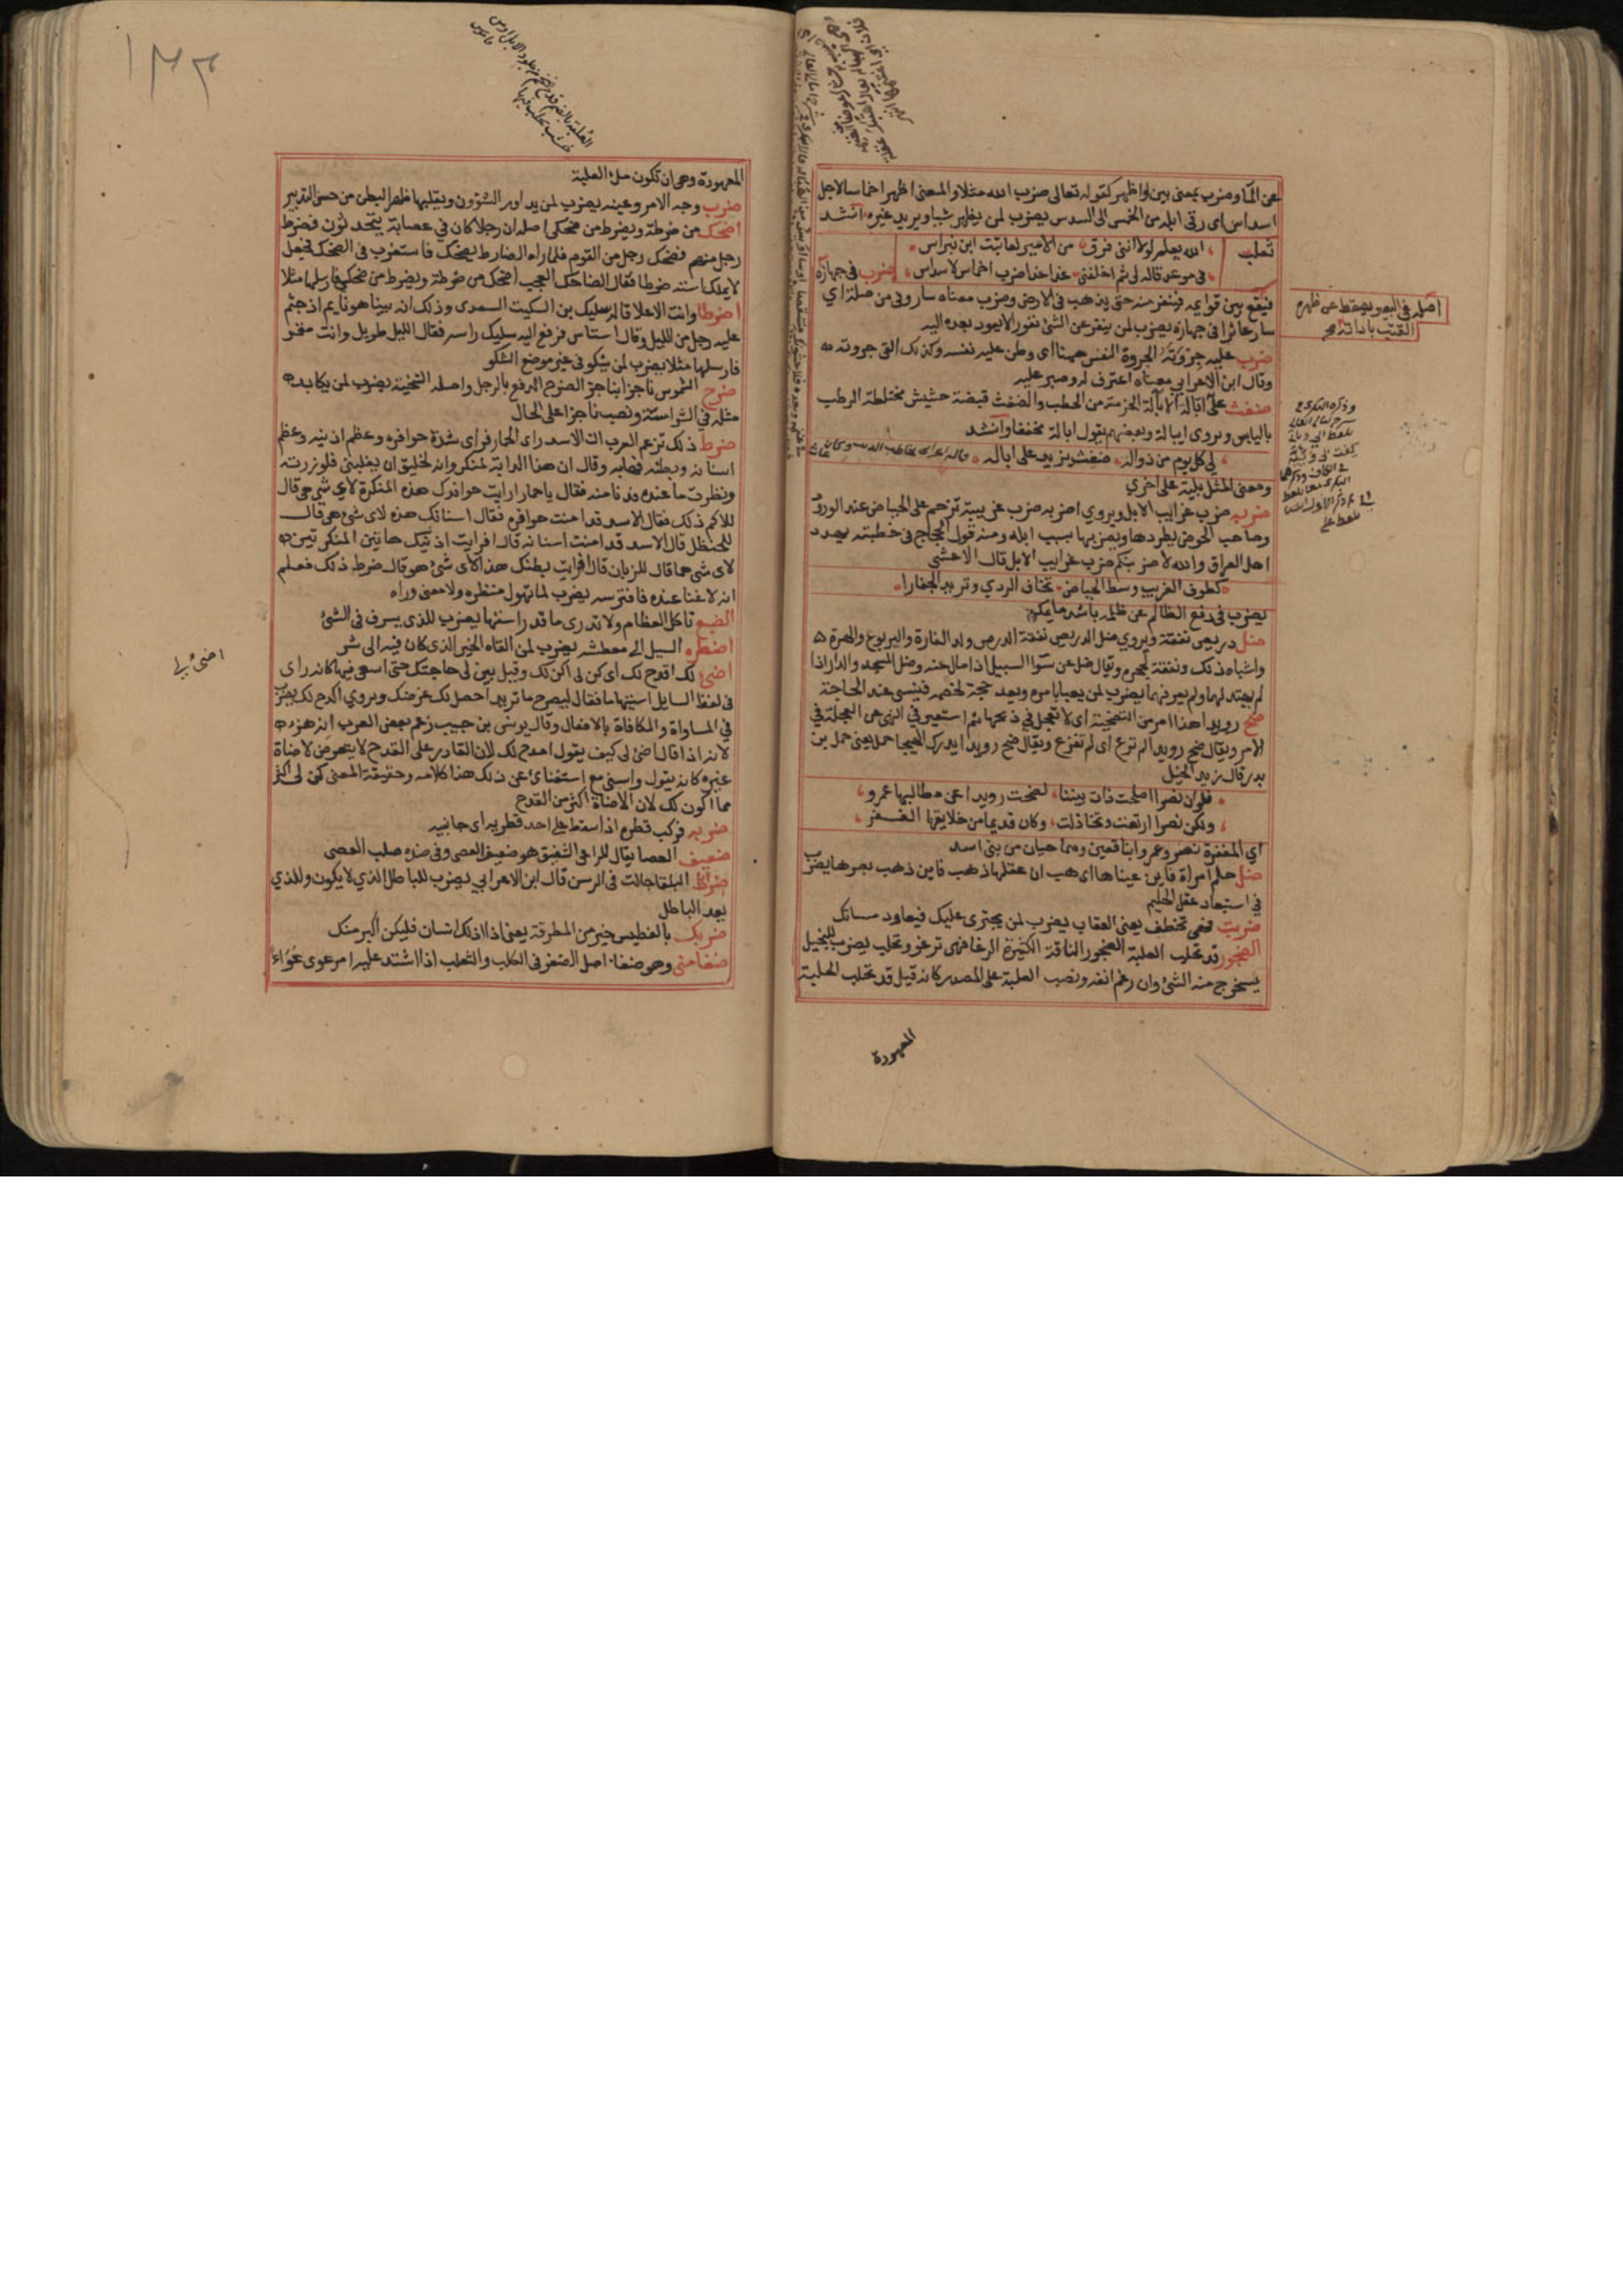 عن الماء وضرب بمعنى بين واظهر كقوله تعالى ضرب الله مثلا والمعنى اظهر اخماسا لاجل
اسداس اى رقى ابله من الخمس الى السدس يضرب لمن يظهر شيا ويريد غيره انشد
ثعلب
الله يعلم لولا انني فرق من الامير لعاتبت ابن نبراس
فى موعد قاله لى ثم اخلفنى غدا غدا ضرب اخماس لاسداس
ضرب فى جهازه
اصله فى البعير يسقط عن ظهره
القتب باداته
فيقع بين قوايمه فينفر منه حتى يذهب فى الارض وضرب معناه سار وفى من صلة اي
سار عاثرا فى جهازه يضرب لمن ينفر عن الشئ نفورا لا يعود بعده اليه
ضرب عليه جروته الجروة النفس ههنا اى وطن عليه نفسه وكذلك القى جروته
وقال ابن الاعرابي معناه اعترف له وصبر عليه
ضغث على ابالة الابالة الحزمة من الحطب والضغث قبضة حشيش مختلطة الرطب
باليابس ويروى ايبالة وبعضهم يقول ابالة مخففا وانشد
لى كل يوم من ذواله ضغث يزيد على اباله
ومعنى المثل بلية على اخري
ضربه ضرب غرايب الابل ويروي اضربه ضرب غريبة تزحم على الحياض عند الورد
وصاحب الحوض يطردها ويضربها بسبب ابله ومنه قول الحجاج فى خطبته يهدد
اهل العراق والله لاضربنكم ضرب غرايب الابل قال الاعشى
كطوف الغريب وسط الحياض تخاف الردي وتريد الجفارا
يضرب فى دفع الظالم عن ظلمه باشد ما يمكن
ضل دريص نفقه ويروي ضل الدريص نفقه الدرص ولد الفارة واليربوع والهرة
واشباه ذلك ونفقه جحره ويقال ضل عن سوا السبيل اذا مال عنه وضل المسجد والدار اذا
لم يهتد لهما ولم يعرفهما يضرب لمن يعبا بامره ويعد حجة لخصمه فينسى عند الحاجة
ضح رويدا هذا امر من التضحية اى لا تعجل في ذبحها ثم استعير في النهى عن العجلة في
الامر ويقال ضح رويدا لم ترع اى لم تفزع ويقال ضح رويدا يدرك الهيجا حمل يعنى حمل بن
بدر قال زيد الخيل
فلو ان نصرا اصلحت ذات بيننا لضحت رويدا عن مطالبها عمرو
ولكن نصرا ارتعت وتخاذلت وكان قديما من خلايقها الغفر
اي المغفرة نصر وعمرو ابنا قعين وهما حيان من بنى اسد
ضل حلم امراة فاين عيناها اى هب ان عقلها ذهب فاين ذهب بصرها يضرب
في استبعاد عقل الحليم
ضربت فهى تخطف يعنى العقاب يضرب لمن يجترى عليك فيعاود مساتك
الضجور قد تحلب العلبة الضجور الناقة الكثيرة الرغا فهى ترغو وتحلب يضرب للبخيل
يستخرج منه الشئ وان رغم انفه ونصب العلبة على المصدر كانه قيل قد تحلب الحلبة
المعهودة
١٣٣
المعهودة وهى ان تكون ملء العلبة
ضرب وجه الامر وعينه يضرب لمن يداور الشؤون ويقلبها ظهرا لبطن من حسن التدبير
اضحك من ضرطة ويضرط من ضحكى اصله ان رجلا كان في عصابة يتحدثون فضرط
رجل منهم فضحك رجل من القوم فلما راه الضارط يضحك فاستغرب فى الضحك فجعل
لا يملك استه ضرطا فقال الضاحك العجب اضحك من ضرطه ويضرط من ضحكى فارسلها مثلا
اضرطا وانت الاعلا قاله سليك بن السكيت السعدى وذلك انه بينا هو نايم اذ جثم
عليه رجل من الليل وقال استاسر فرفع اليه سليك راسه فقال الليل طويل وانت مقمر
فارسلها مثلا يضرب لمن يشكو فى غير موضع الشكو
ضرح الشموس ناجزا بناجز الضرح الدفع بالرجل واصله التنحية يضرب لمن يكابد
مثله فى الشراسة ونصب ناجزا على الحال
ضرط ذلك تزعم العرب ان الاسد راى الحمار فراى شدة حوافره وعظم اذنيه وعظم
اسنانه وبطنه فهابه وقال ان هذا الدابة لمنكر وانه لخليق ان يغلبنى فلو زرته
ونظرت ما عنده فدنا منه فقال يا حمار ارايت حوافرك هذه المنكرة لاي شى هى قال
للاكم ذلك فقال الاسد قد امنت حوافره فقال اسنانك هذه لاى شئ هى قال
للحنظل قال الاسد قد امنت اسنانه قال افرايت اذنيك هاتين المنكرتين
لاى شى هما قال للزبان قال افرايت بطنك هذا لاى شئ هو قال ضرط ذلك فعلم
انه لا غنا عنده فافترسه يضرب لما تهول منظره ولا معنى وراه
الضبع تاكل العظام ولا تدرى ما قدر استها يضرب للذى يسرف فى الشئ
اضطره السيل الى معطشه يضرب لمن القاه الخير الذى كان فيه الى شر
اضئ لى
اضئ لى اقدح لك اى كن لى اكن لك وقيل بين لى حاجتك حتى اسعى فيها كانه راى
فى لفظ السايل استبهاما فقال ليصرح ما تريد احصل لك غرضك ويروي اكدح لك يضرب
في المساواة والمكافاة بالافعال وقال يونس بن حبيب زعم بعض العرب انه هزء
لانه اذا قال اضئ لى كيف يقول اقدح لك لان القادر على القدح لا يتعرض لاضاة
غيره كانه يقول واسنى مع استغناى عن ذلك هذا كلامه وحقيقة المعنى كن لى اكثر
مما اكون لك لان الاضاة اكثر من القدح
ضربه فركب قطره اذا سقط على احد قطريه اى جانبيه
ضعيف العصا يقال للراعى الشفيق هو ضعيف العصى وفى ضده صلب العصى
ضرط البلقا جالت فى الرسن قال ابن الاعرابي يضرب للباطل الذي لا يكون وللذي
يعد الباطل
ضربك بالفطيس خير من المطرقة يعنى اذا اذلك انسان فليكن اكبر منك
ضغا منى وهو ضغاء اصل الضغو فى الكلب والثعلب اذا اشتد عليه امر عوى عواء